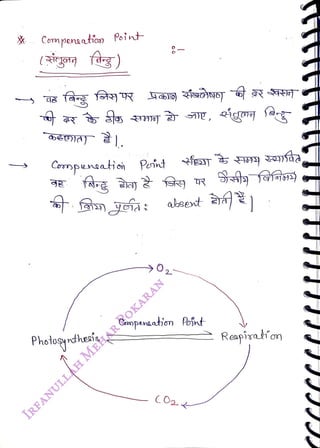 * Compensation Point
(संतुलन बिन्दु) :-
→ वह बिन्दु जिस पर प्रकाश संश्लेषण की दर श्वसन
की दर के ठीक समान हो जाए, संतुलन बिन्दु
कहलाता है।
→ Compensation Point संध्या के समय स्थापित
वह बिन्दु होता है जिस पर गैसीय विनिमय
की क्रिया पूर्णतः absent होती है।
O2
Compensation Point
Photosynthesis Respiration
CO2
IRFANULLAH MEHAR POKARAN